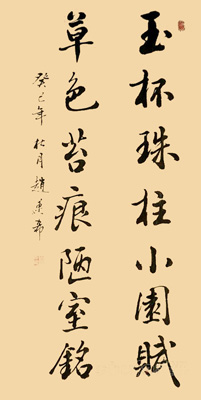 玉杯珠柱小園賦
草色苔痕陋室銘
癸巳年秋月趙